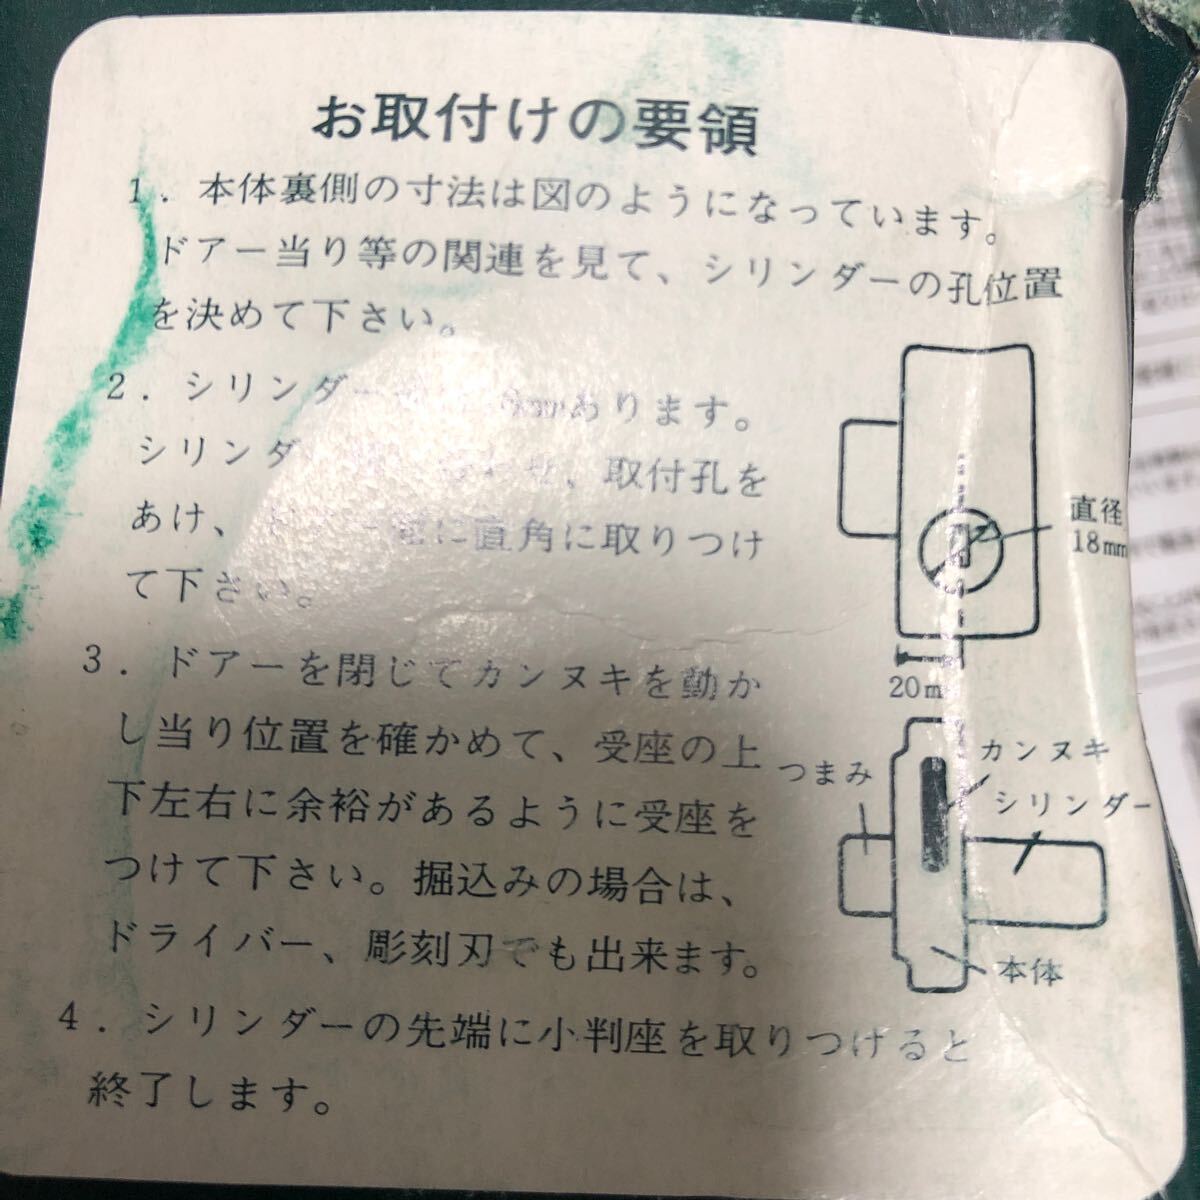 お取付けの要領
1．本体裏側の寸法は図のようになっています。
ドアー当り等の関連を見て、シリンダーの孔位置
を決めて下さい。
2．シリンダー mmあります。
シリンダ 、取付孔を
あけ、 に直角に取りつけ
て下さい。
3．ドアーを閉じてカンヌキを動か
し当り位置を確かめて、受座の上
下左右に余裕があるように受座を
つけて下さい。掘込みの場合は、
ドライバー、彫刻刃でも出来ます。
4．シリンダーの先端に小判座を取りつけると
終了します。
直径
18mm
20m
つまみ
カンヌキ
シリンダー
本体